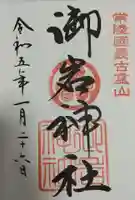 常陸國最古霊山
御岩神社
令和五年一月二十六日